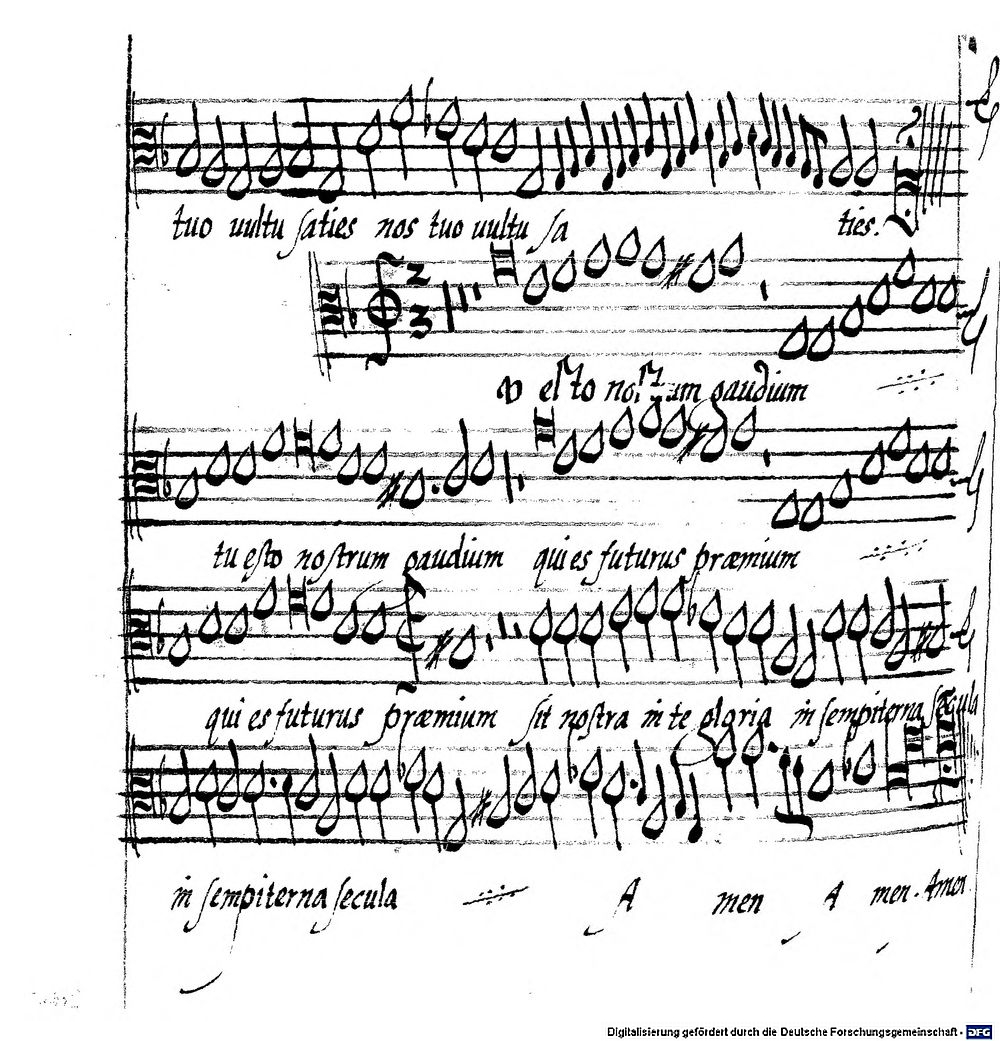 tuo uultu saties nos tuo uultu sa ties.
V esto nostrum gaudium
tu esto nostrum gaudium qui es futurus præmium
qui es futurus præmium sit nostra in te gloria in sempiterna secula
in sempiterna secula A men A men. Amen
Digitalisierung gefördert durch die Deutsche Forschungsgemeinschaft - DFG